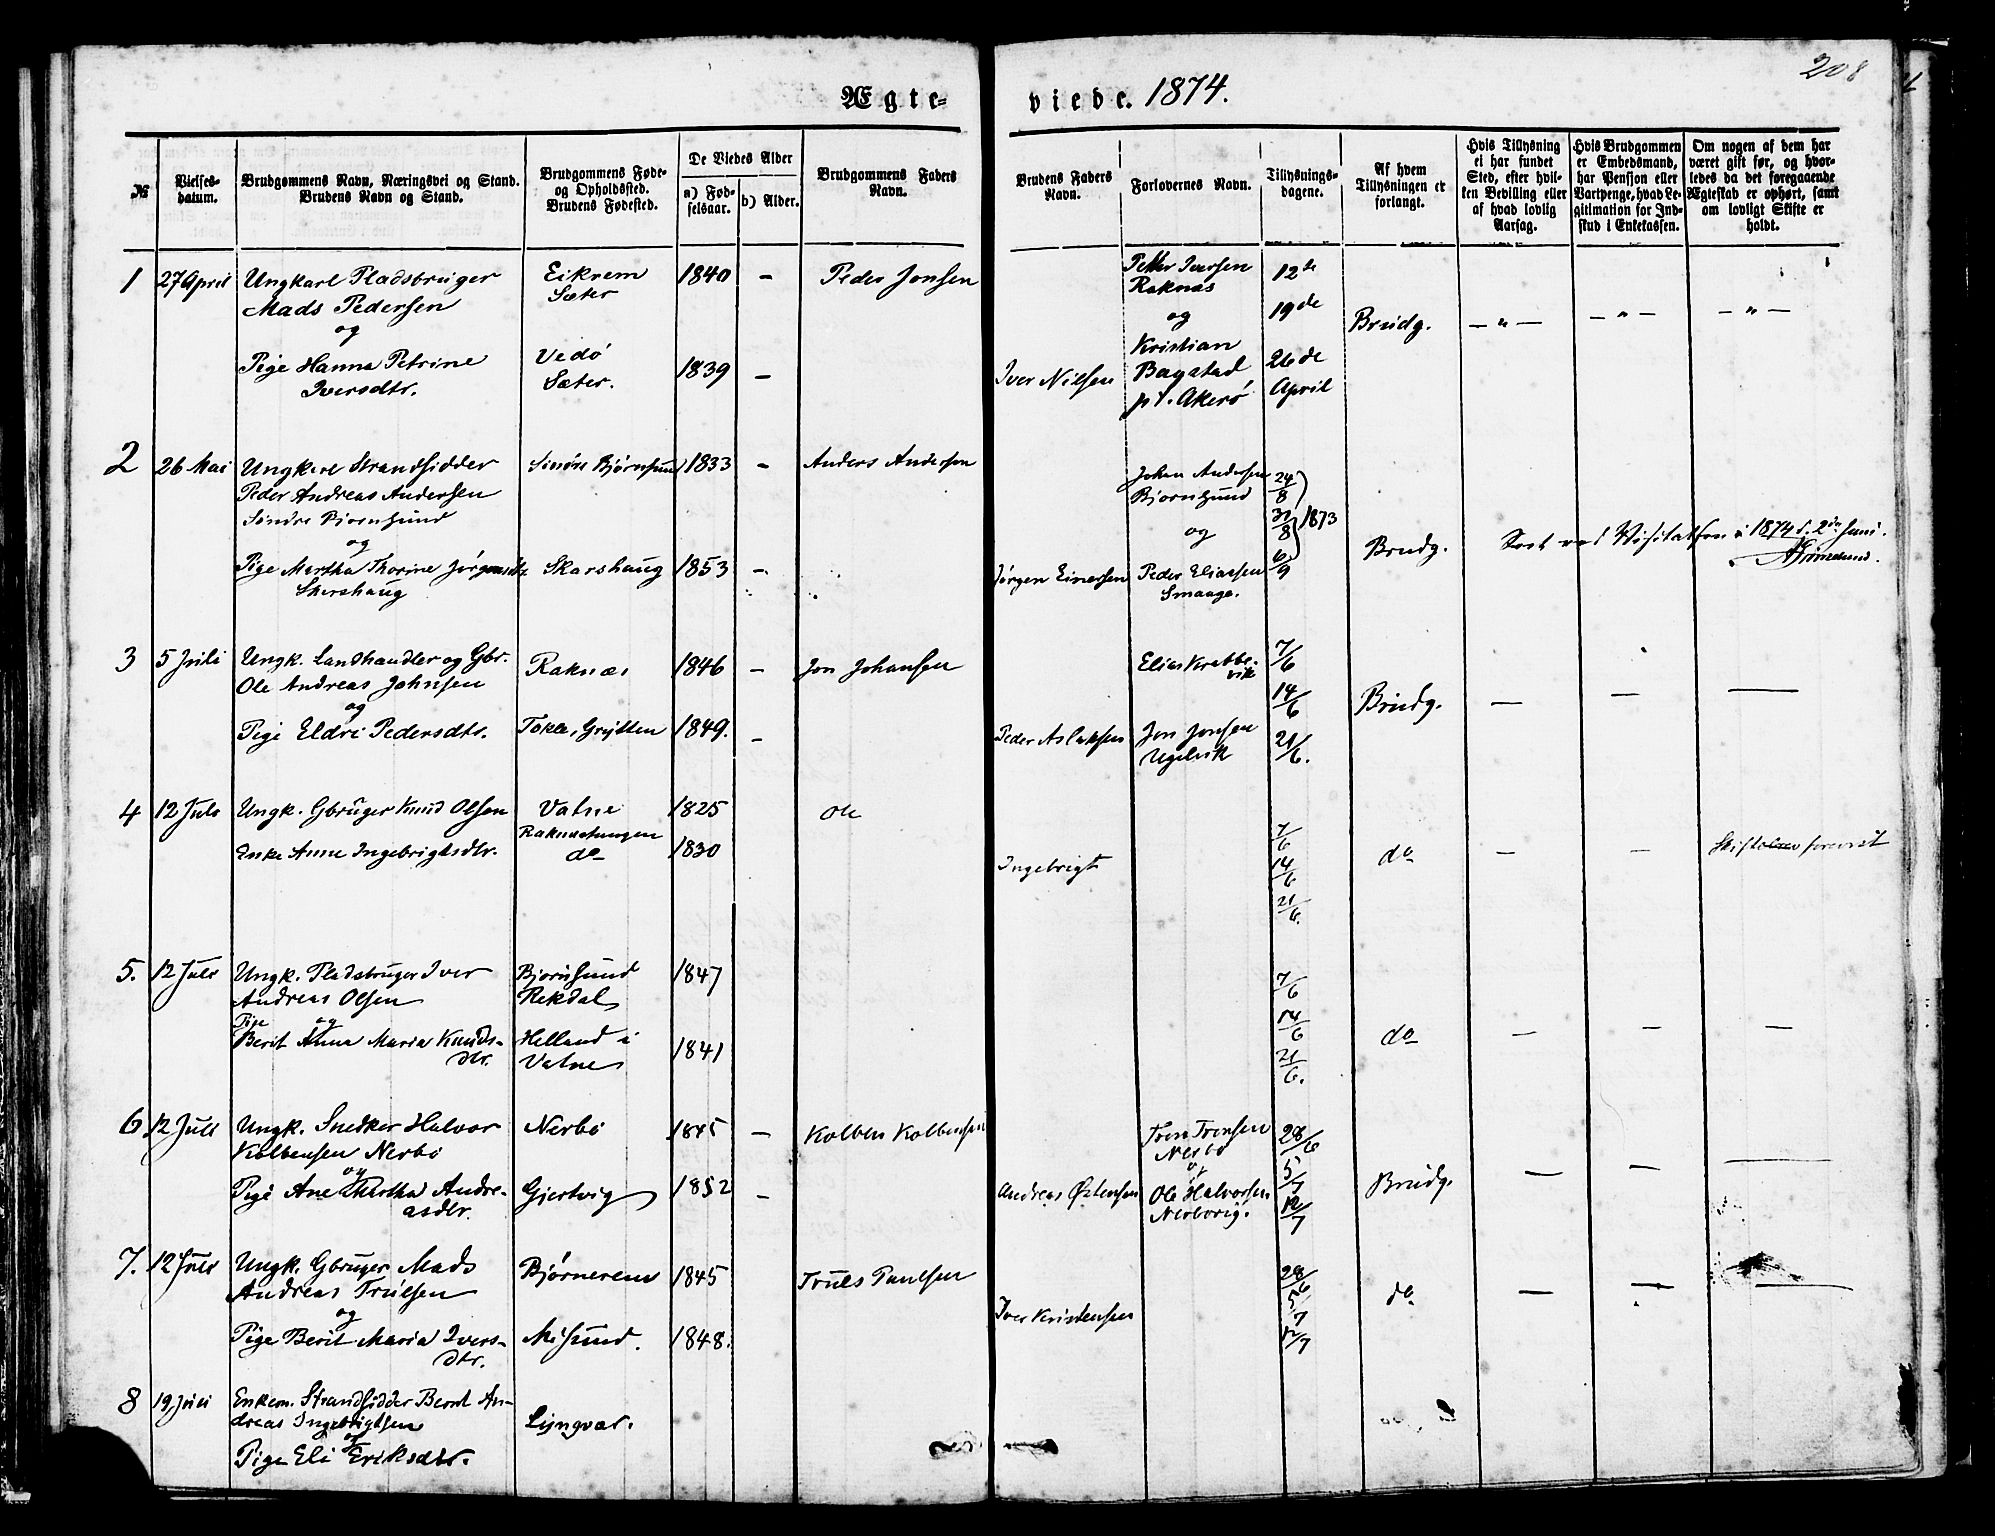 208
Ægteviede. 1874.
№
Vielses-datum.
Brudgommens Navn, Næringsvei og Stand.
Brudens Navn og Stand.
Brudgommens Føde-
og Opholdssted.
Brudens Fødested.
De Viedes Alder
a) Fød-
selsaar.
b) Alder.
Brudgommens Faders
Navn.
Brudens Faders
Navn.
Forlovernes Navn.
Tillysnings-
dagene.
Af hvem
Tillysningen er
forlangt.
Hvis Tillysning
ei har fundet
Sted, efter hvil-
ken Bevilling eller
af hvad lovlig
Aarsag.
Hvis Brudgommen
er Embedsmand,
har Pension eller
Vartpenge, hvad Le-
gitimation for Ind-
skud i Enkekassen.
Om nogen af dem har
været gift før, og hvor-
ledes da det foregaaende
Ægteskab er ophørt, samt
om lovligt Skifte er
holdt.
1 27 April Ungkarl Pladsbruger Eikrem 1840 – Peder Jonsen Petter Iversen 12te
Mads Pedersen Sæter Raknæs
og og 19de Brudg. – „ – – „ – – „ –
Pige Hanna Petrine Vedö 1839 – Iver Nielsen Kristian 26de
Iversdtr. Sæter. Bagstad April
pt. Akerö
2 26 Mai Ungkarl Strandsidder Bjørnsund 1833 – Anders Andersen Johan Andersen 24/8
Peder Andreas Andersen Bjornsund 31/8 1873
Söndre Bjornsund
og og Brudg. 1874 d. 2den Juni.
Pige Martha Thorine Jørgensdtr Skarshaug 1853 – Jørgen Einersen Peder Eliassen 6/9
Skarshaug Smaage.
3 5 Juli Ungk. Landhandler og Gbr. Raknæs 1846 – Jon Johansen Elias Krabbe- 7/6
Ole Andreas Johnsen vik
og 14/6 Brudg. – – –
Pige Eldri Pedersdtr. Tokle, Grytten 1849. – Peder Aslaksen Jon Jonsen 21/6.
Ugelvik
4 12 Juli Ungk. Gbruger Knud Olsen Vatne 1825 Ole 7/6
Enke Anne Ingebrigtsdtr. do 1830 Ingebrigt 14/6 do – – forevist
21/6.
5. 12 Juli Ungk. Pladsbruger Iver Bjornsund 1847 7/6
Andreas Olsen Rekdal
Pige og 14/6 do – – –
Berit Anna Maria Knuds- Helland i 1841 21/6.
dtr. Vatne
6 12 Juli Ungk. Snedker Halvor Nerbö 1845 – Kolben Kolbensen 28/6
Kolbensen Nerbö Nerbö
og og 5/7 Brudg. – – –
Pige Ane Martha Andre- Gjertvig 1852 – Andreas Østensen Ole Halvorsen 12/7
asdtr. Nerbovig.
7. 12 Juli Ungk. Gbruger Mads Bjørnerem 1845 Truls Paulsen 28/6
Andreas Trulsen 5/7 do. – – –
og Iver Kristensen
Pige Berit Maria Ivers- Misund. 1848. 12/7
dtr.
8 19 Juli Enkem. Strandsidder Bernt An- Lyngvær.
dreas Ingebrigtsen
og
Pige Eli Eriksdtr.